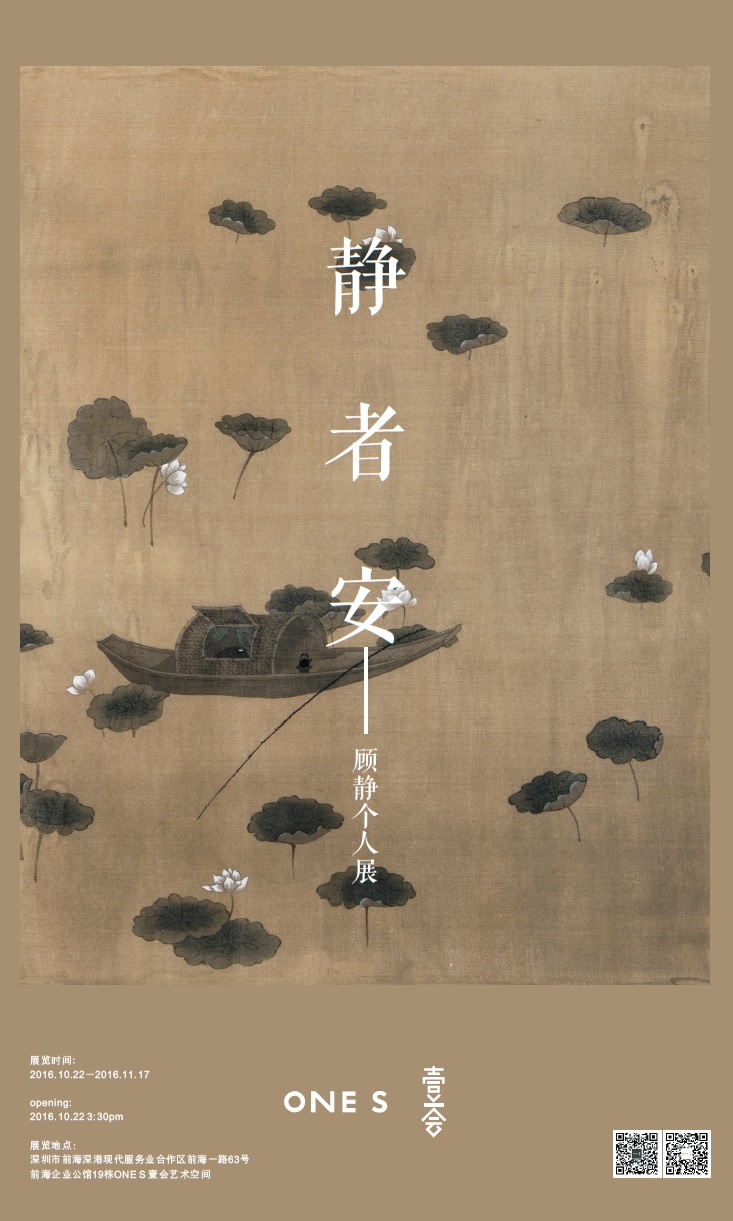 静者安
顾静个人展
展览时间:
2016.10.22—2016.11.17
opening:
2016.10.22 3:30pm
展览地点:
深圳市前海深港现代服务业合作区前海一路63号
前海企业公馆19栋ONE S 壹会艺术空间
ONE S
壹会